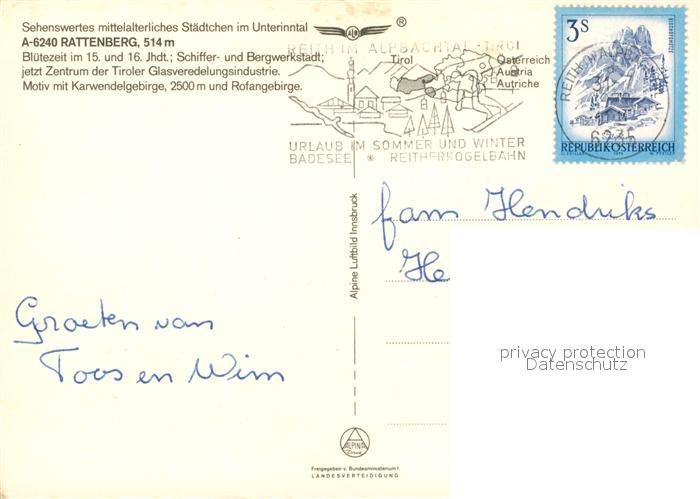 Sehenswertes mittelalterliches Städtchen im Unterinntal
A-6240 RATTENBERG, 514 m
Blütezeit im 15. und 16. Jhdt.; Schiffer- und Bergwerkstadt;
jetzt Zentrum der Tiroler Glasveredelungsindustrie.
Motiv mit Karwendelgebirge, 2500 m und Rofangebirge.
®
Tirol
Österreich
Austria
Autriche
REITH IM ALPBACHTAL-TIROL
URLAUB IM SOMMER UND WINTER
BADESEE * REITHERKOGELBAHN
3S
6235
REPUBLIK ÖSTERREICH
fam Hendriks
He
Groeten van
Toos en Wim
Alpine Luftbild Innsbruck
privacy protection
Datenschutz
ALPINA
Druck
Freigegeben v. Bundesministerium f.
LANDESVERTEIDIGUNG